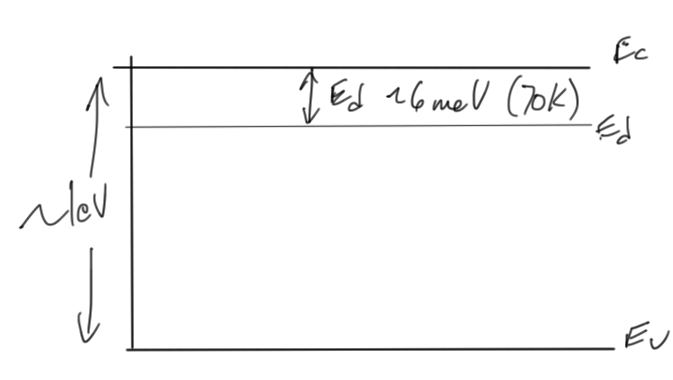 Ec
Ed ~6meV (70K)
Ed
~1eV
Ev